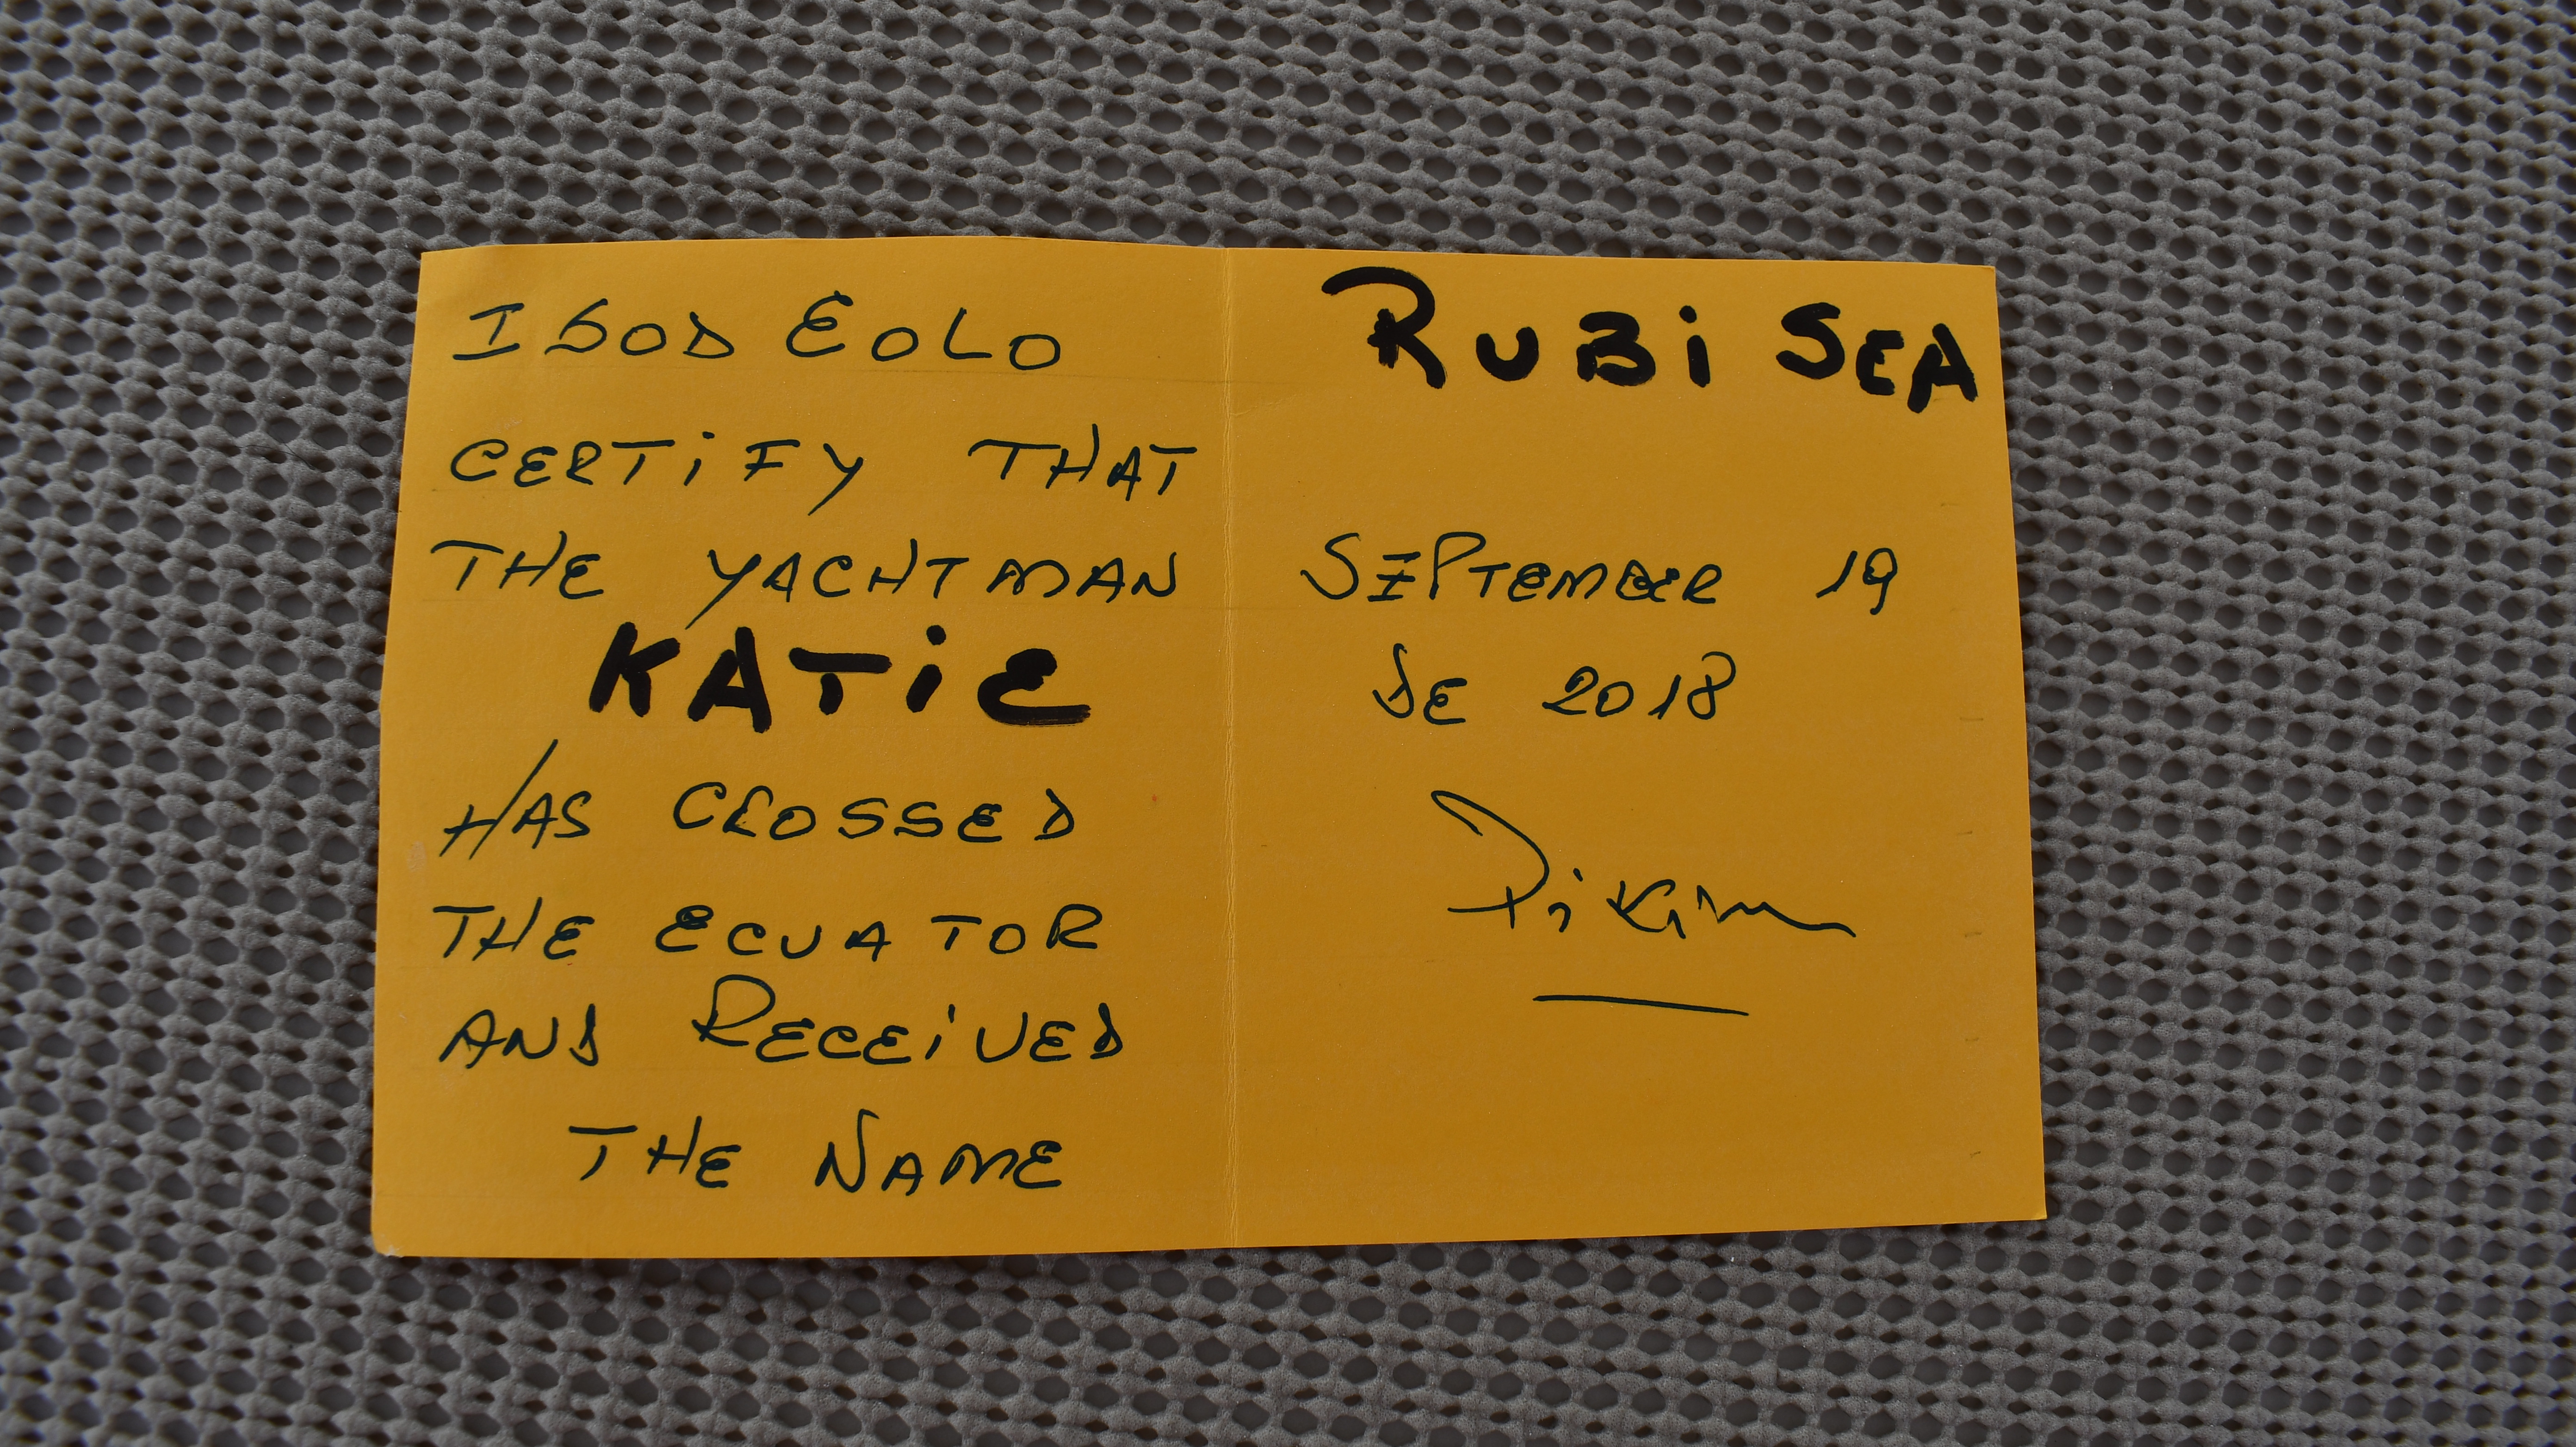 I GOD EOLO
CERTiFY THAT
THE YACHTMAN
KATiE
HAS CROSSED
THE ECUATOR
AND RECEiVED
THE NAME
RUBi SEA
SEPTEMBER 19
DE 2018